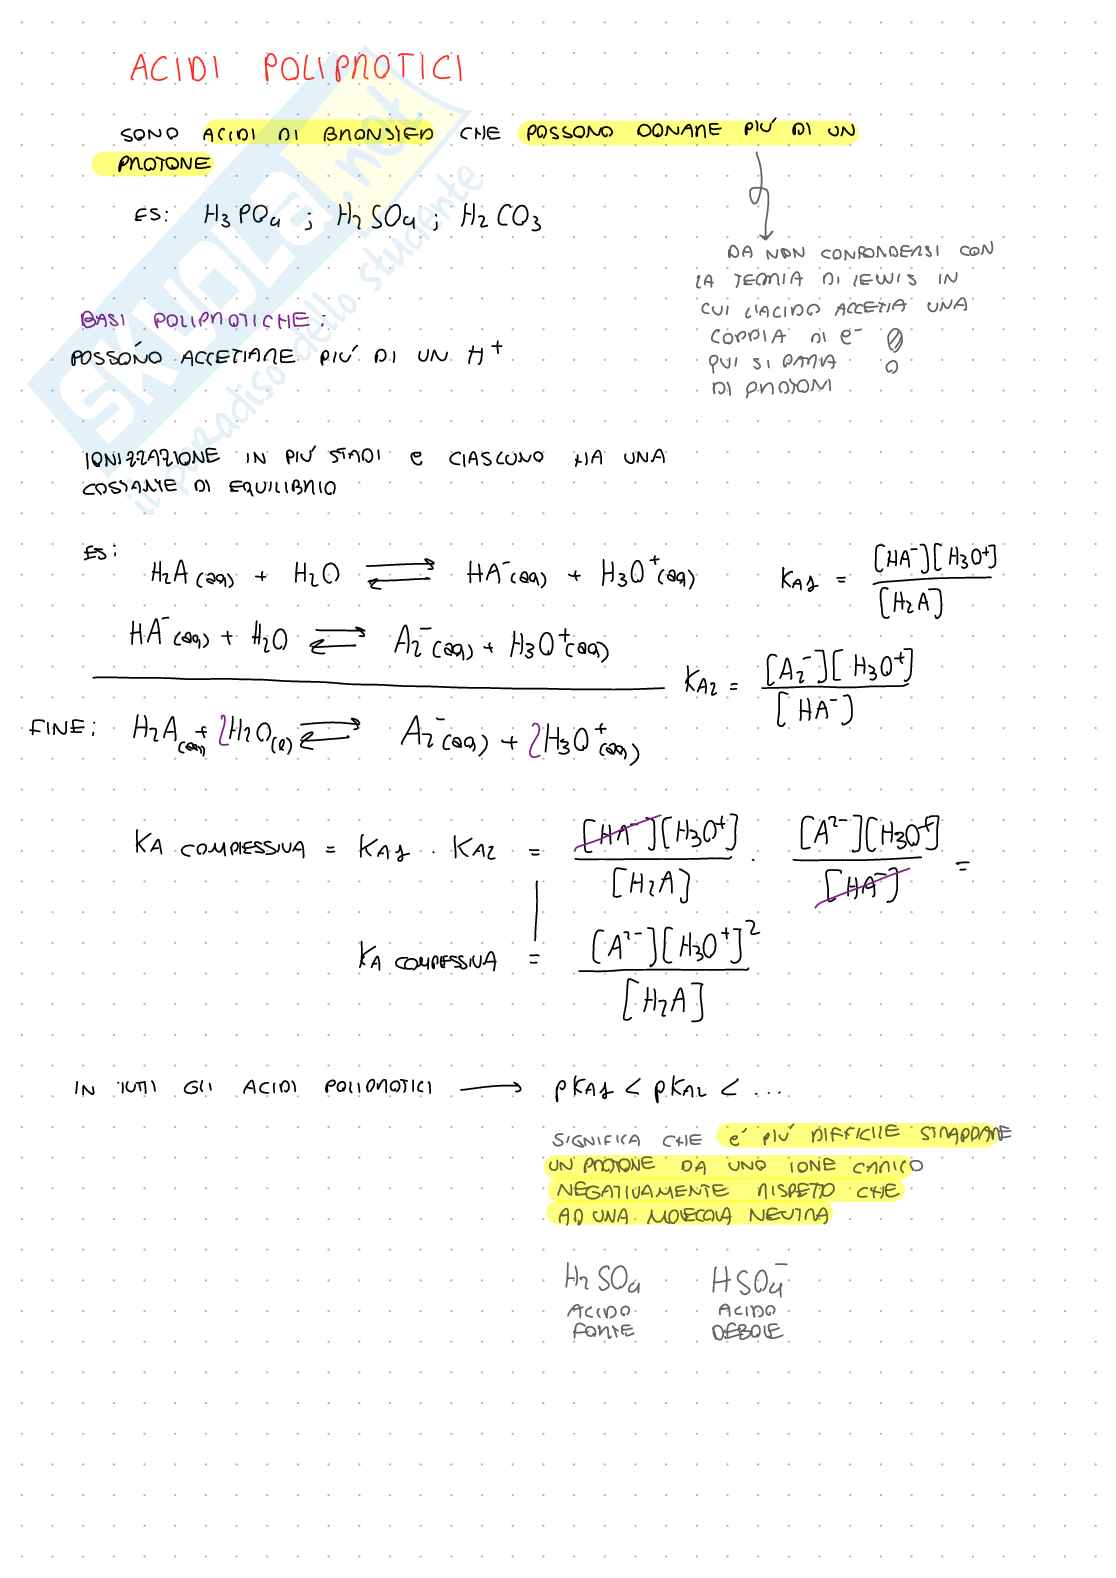 ACIDI POLIPROTICI
SONO ACIDI DI BRONSTED CHE POSSONO DONARE PIÚ DI UN
PROTONE
ES: H₃PO₄ ; H₂SO₄ ; H₂CO₃
DA NON CONFONDERSI CON
LA TEORIA DI LEWIS IN
CUI L'ACIDO ACCETTA UNA
COPPIA DI e⁻
QUI SI PARLA
DI PROTONI
BASI POLIPROTICHE:
POSSONO ACCETTARE PIÚ DI UN H⁺
IONIZZAZIONE IN PIÚ STADI e CIASCUNO HA UNA
COSTANTE DI EQUILIBRIO
ES:
H₂A(aq) + H₂O ⇌ HA⁻(aq) + H₃O⁺(aq) KA1 = [HA⁻][H₃O⁺] / [H₂A]
HA⁻(aq) + H₂O ⇌ A₂⁻(aq) + H₃O⁺(aq)
KA2 = [A₂⁻][H₃O⁺] / [HA⁻]
FINE: H₂A(aq) + 2H₂O(l) ⇌ A₂⁻(aq) + 2H₃O⁺(aq)
KA COMPLESSIVA = KA1 · KA2 = [HA⁻][H₃O⁺] / [H₂A] · [A²⁻][H₃O⁺] / [HA⁻] =
KA COMPLESSIVA = [A²⁻][H₃O⁺]² / [H₂A]
IN TUTTI GLI ACIDI POLIPROTICI → pKA1 < pKA2 < ...
SIGNIFICA CHE é PIÚ DIFFICILE STRAPPARE
UN PROTONE DA UNO IONE CARICO
NEGATIVAMENTE RISPETTO CHE
AD UNA MOLECOLA NEUTRA
H₂SO₄ HSO₄⁻
ACIDO ACIDO
FORTE DEBOLE
SKUOLA.net
il paradiso dello studente